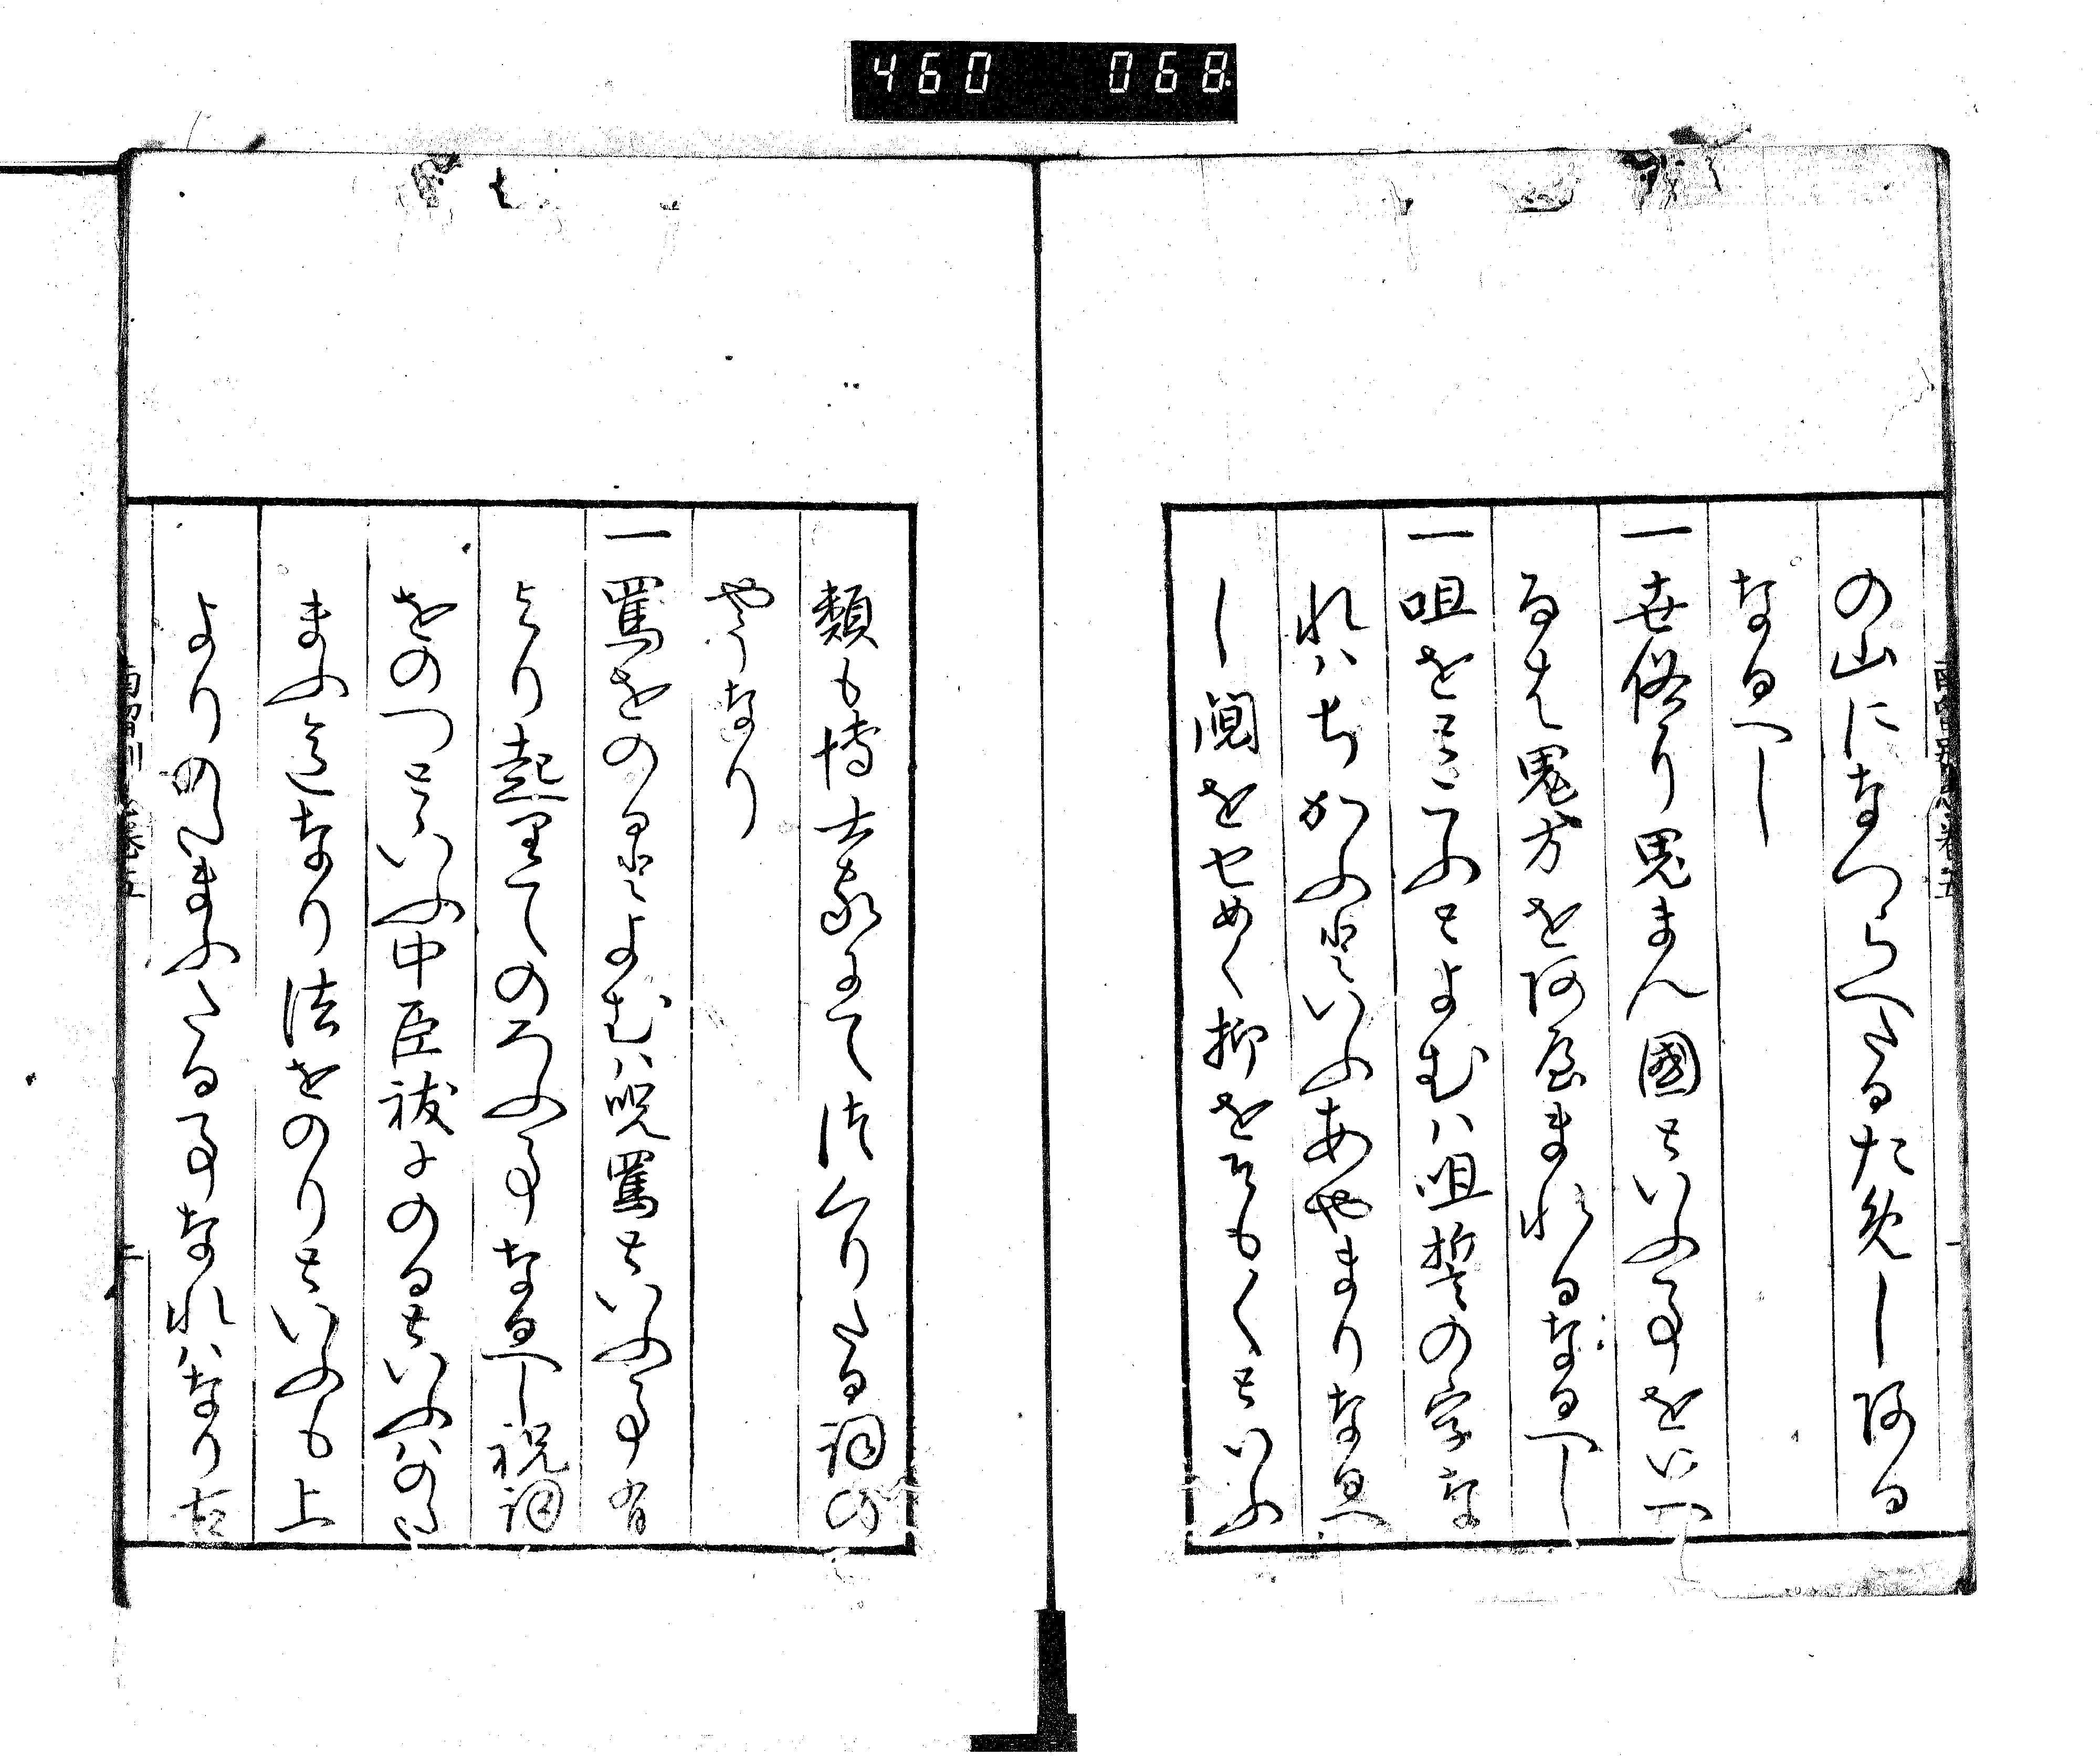 460 068
の山になつらへたるためしある
なるへし
一世俗り鬼まん國といふ事をいへ
るは鬼方をあやまれるなるへし
一咀をとこふとよむハ咀誓の字な
れハちかふといふあやまりなるへ
し䦧をせめく抑をそもくといふ
類も博士家にて法くりたる詞の
やうなり
一罵をのるとよむハ呪罵といふ事有
より起里てのろふ事なるへし祝詞
をのつとゝいふ中臣祓にのるといふハのた
まふ意なり法をのりといふも上
よりのたまふたる事なれハなり古